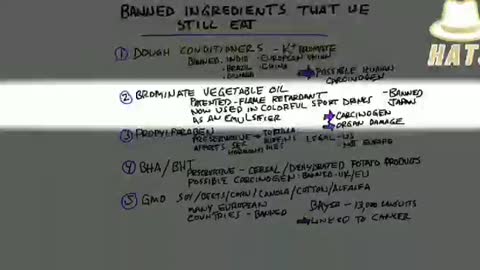 BANNED INGREDIENTS THAT WE
STILL EAT
HATS
① DOUGH CONDITIONERS - K+ BROMATE
BANNED INDIA EUROPEAN UNION
BRAZIL CHINA
POSSIBLE HUMAN
CARCINOGEN
② BROMINATE VEGETABLE OIL
PATENTED - FLAME RETARDANT - BANNED
JAPAN
NOW USED IN COLORFUL SPORT DRINKS
AS AN EMULSIFIER
CARCINOGEN
ORGAN DAMAGE
③ PROPYLPARABEN
PRESERVATIVE TORTILLA LEGAL - US
MUFFINS NOT EUROPE
AFFECTS SEX
HORMONES
④ BHA/BHT
PRESERVATIVE - CEREAL/DEHYDRATED POTATO PRODUCTS
POSSIBLE CARCINOGEN - BANNED - UK/EU
⑤ GMO SOY/BEETS/CORN/CANOLA/COTTON/ALFALFA
MANY EUROPEAN
COUNTRIES - BANNED
BAYER - 13,000 LAWSUITS
LINKED TO CANCER